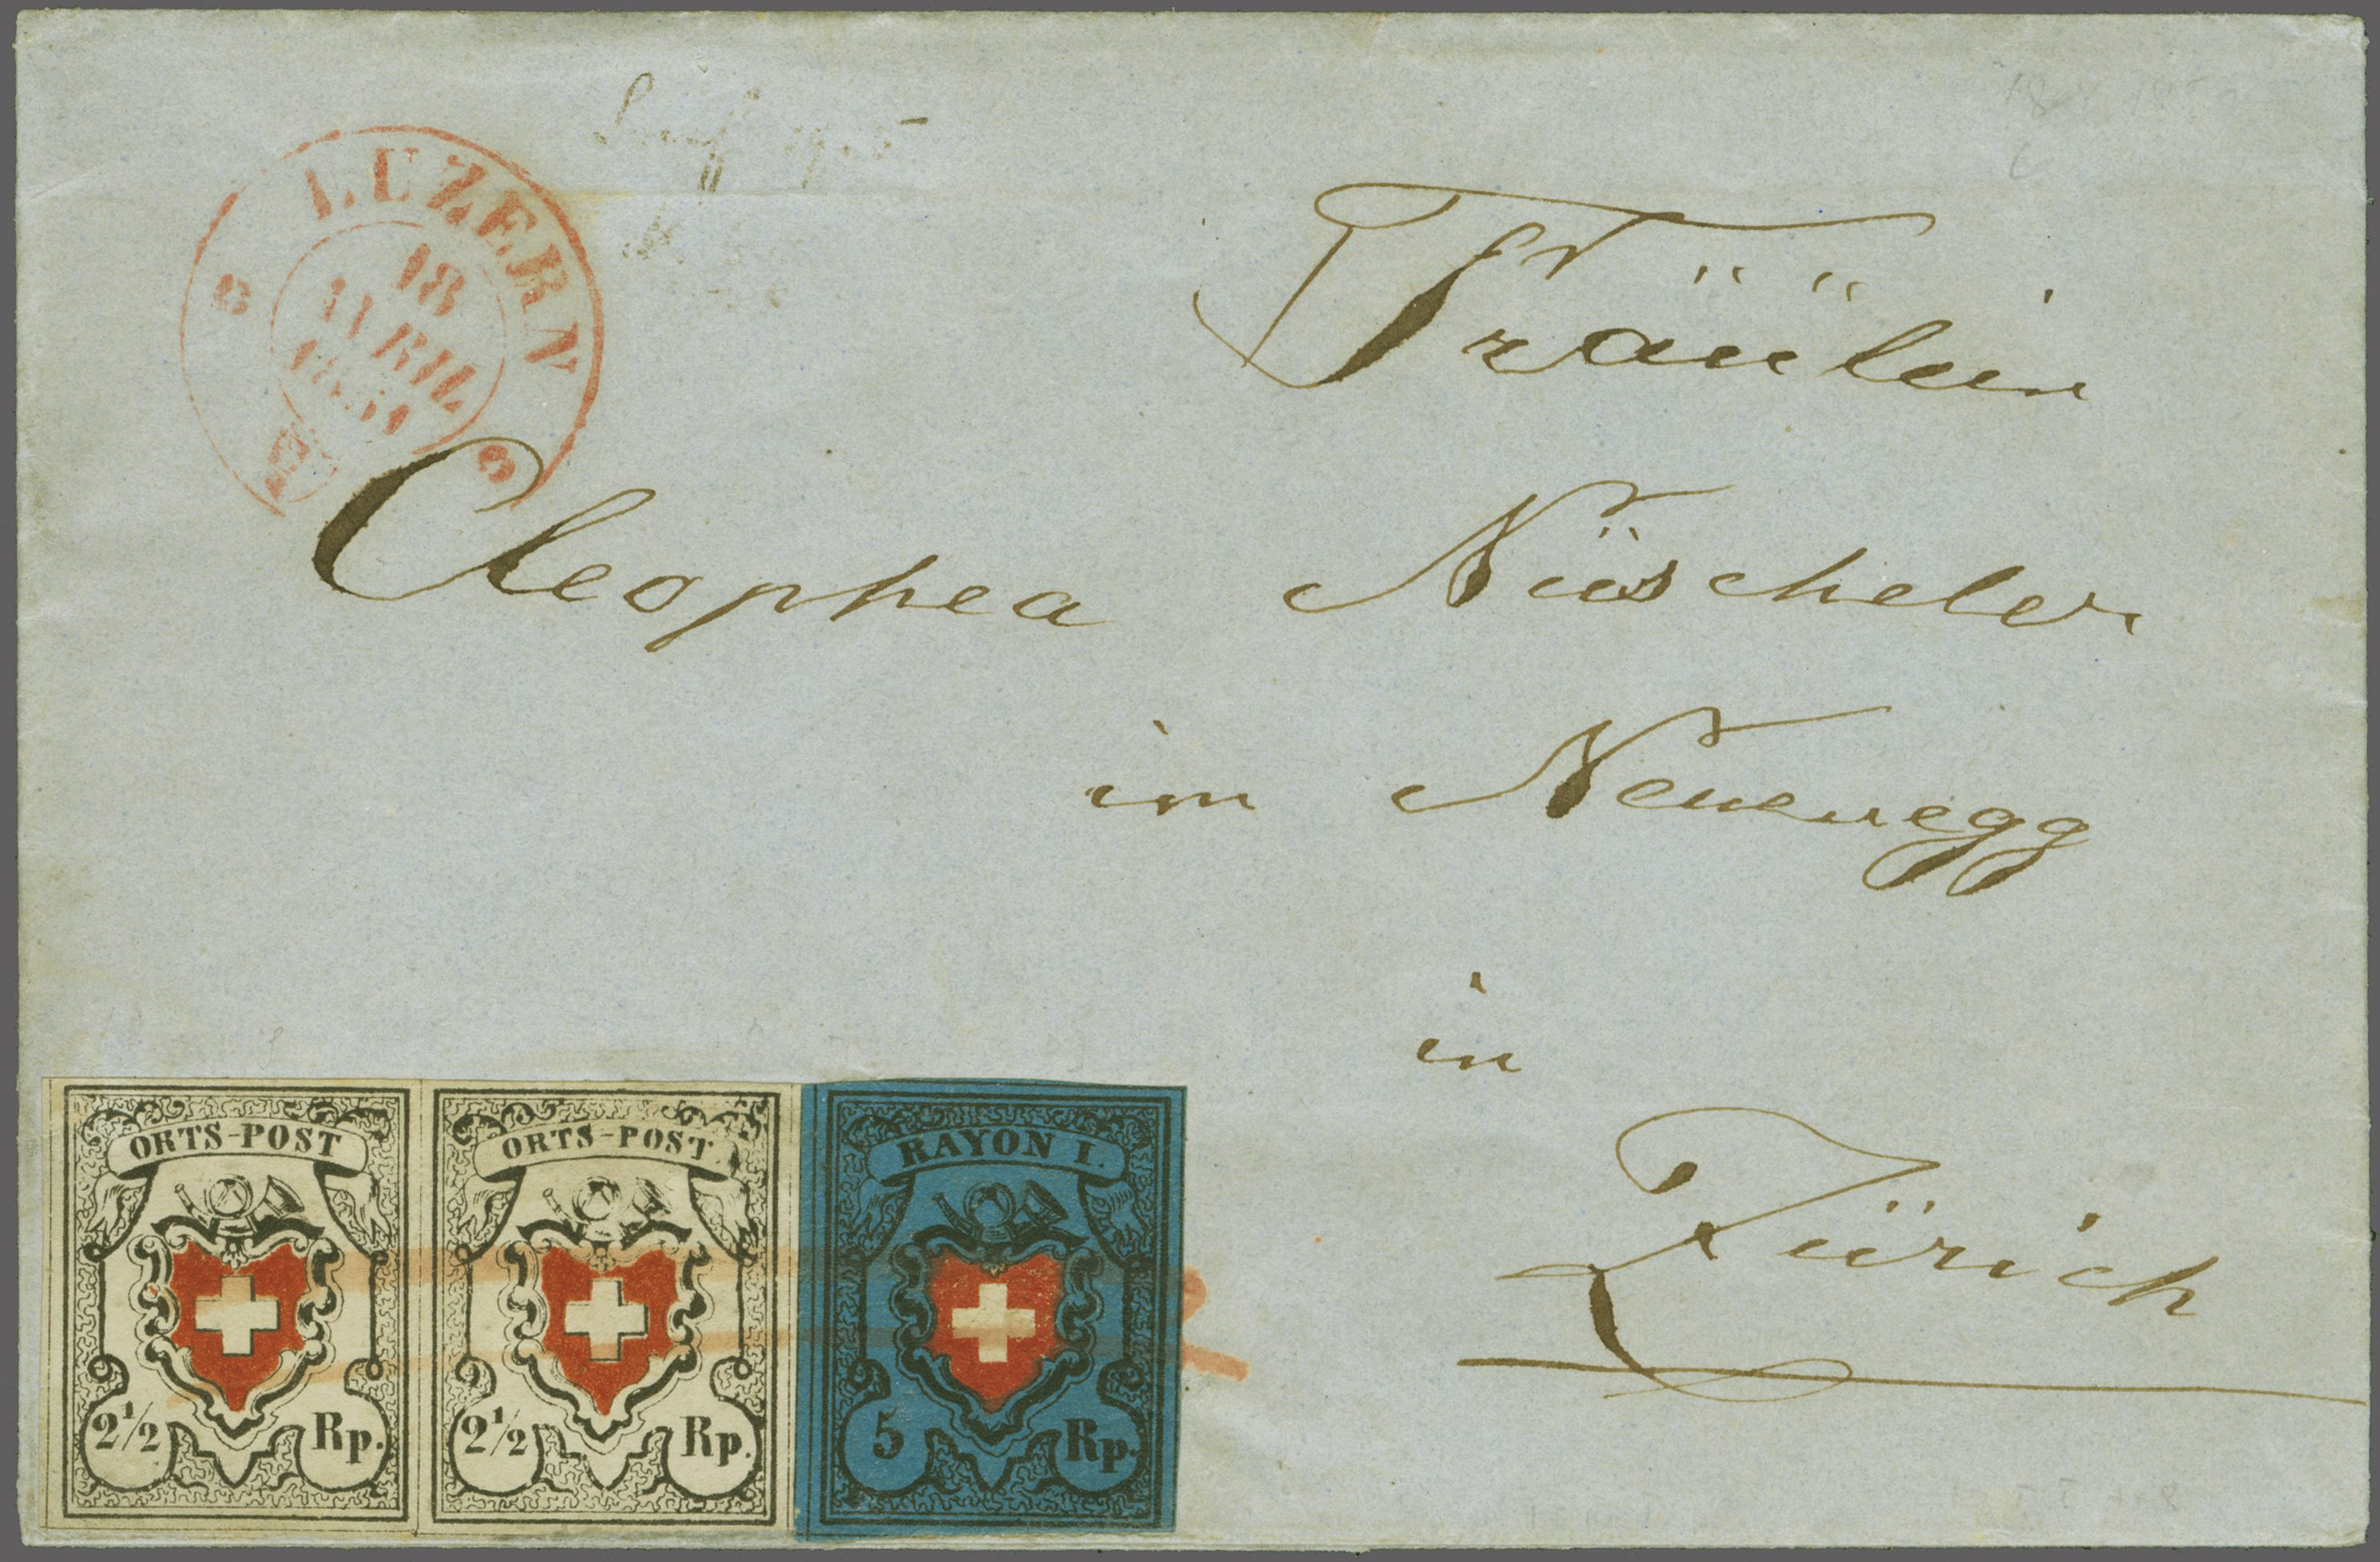 LUZERN
18
AVRIL
1851
Fräülein
Cleophea Nüscheler
im Neuenegg
in
Zürich
ORTS-POST
2½ Rp.
ORTS-POST.
2½ Rp.
RAYON I.
5 Rp.